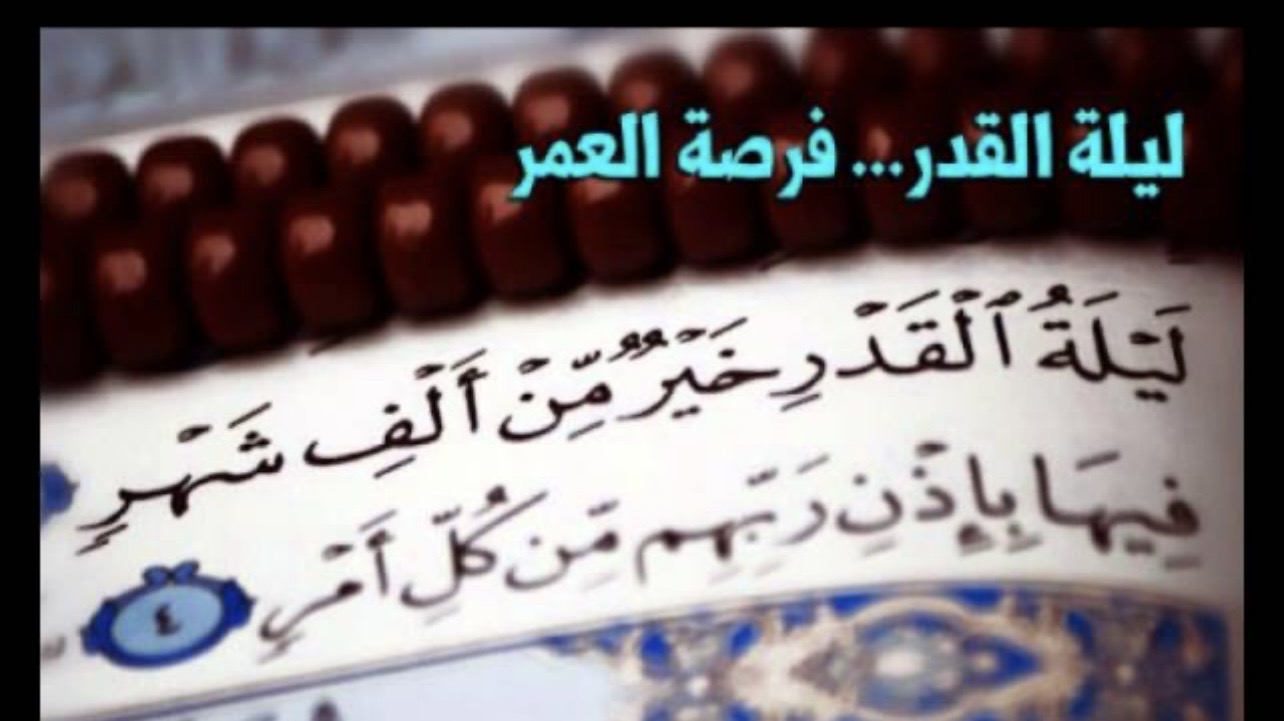 ليلة القدر... فرصة العمر
لَيْلَةُ ٱلْقَدْرِ خَيْرٌ مِّنْ أَلْفِ شَهْرٍ
فِيهَا بِإِذْنِ رَبِّهِم مِّن كُلِّ أَمْرٍ ٤